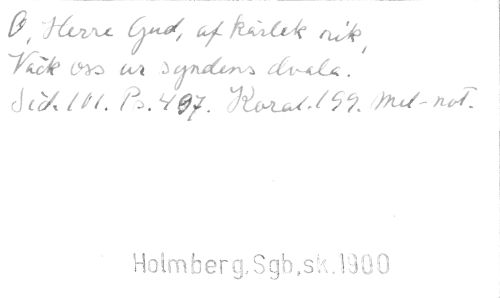 O, Herre Gud, af kärlek rik,
Väck oss ur syndens dvala.
Sid. 101. Ps. 497. Koral. 199. Mel-not.
Holmberg, Sgb, sk. 1900